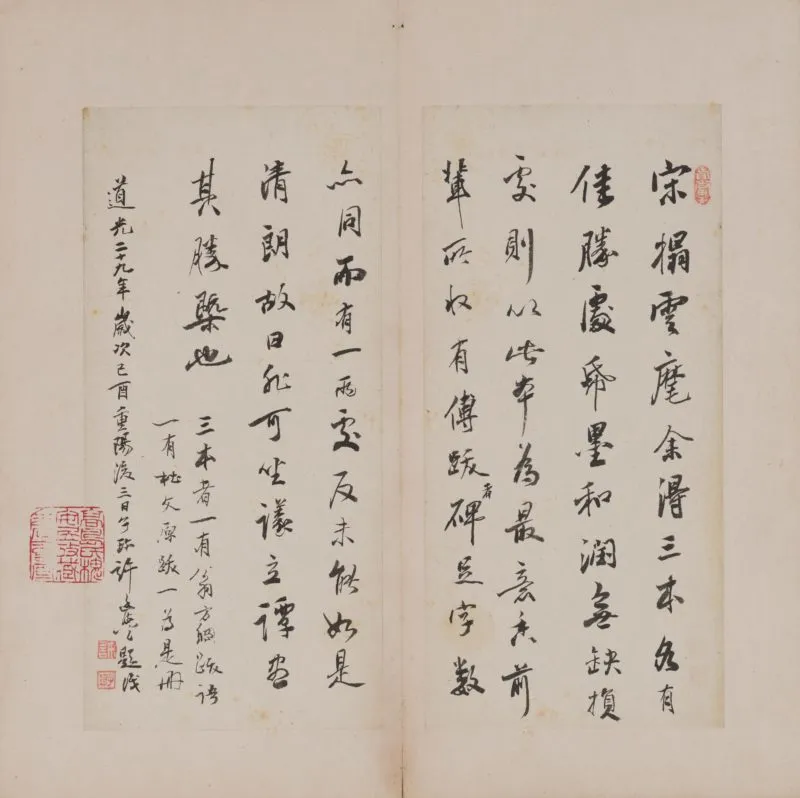 宋搨雲麾余得三本各有
佳勝處紙墨和潤無缺損
處則以此本為最意前
輩所收有傅跋者碑足字數
亦同而有一兩處反未能如是
清朗故曰非可坐議立譚盡
其勝槩也
三本者一有翁方綱跋語
一有杜文原跋一為是冊
道光二十九年歲次己酉重陽後三日許題識